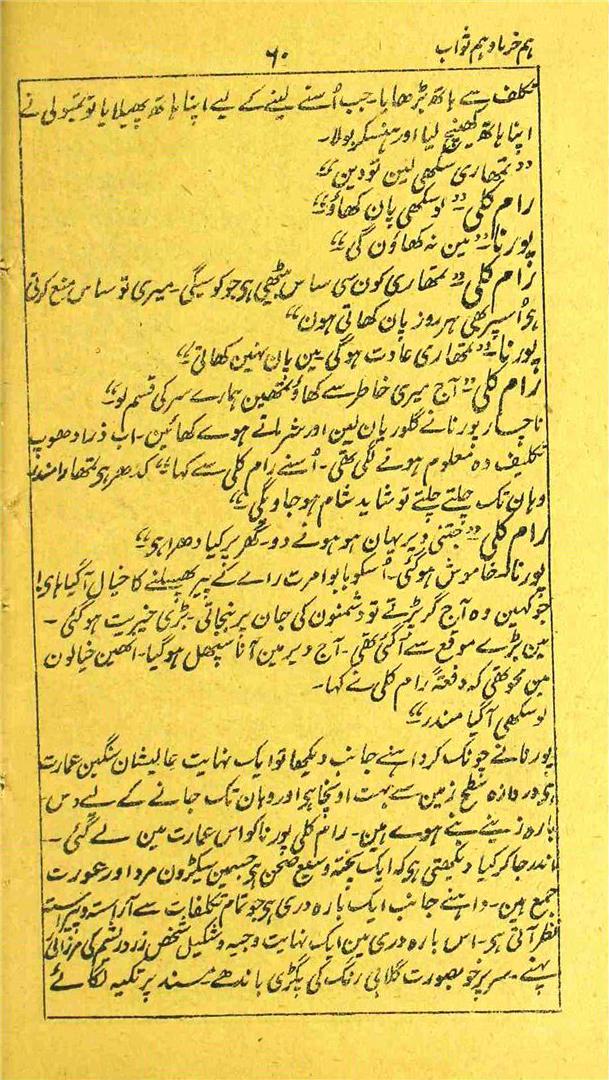 ہم خرما و ہم ثواب
۶۰
تکلف سے ہاتھ بڑھایا۔ جب اُسنے لینے کے لیے اپنا ہاتھ پھیلایا تو تمبولی نے
اپنا ہاتھ کھینچ لیا اور ہنسکر بولا۔
”تمھاری سکھی لین تو دین“
رام کلی ”لو سکھی پان کھاؤ“
پورنا۔ ”مین نہ کھاؤن گی“
رام کلی ”تمھاری کون سی ساس بیٹھی ہی جو کوسیگی۔ میری تو ساس منع کرتی
ہی اُسپر بھی ہر روز پان کھاتی ہون“
پورنا۔ ”تمھاری عادت ہوگی مین پان نہین کھاتی“
رام کلی ”آج میری خاطر سے کھاؤ تمھین ہمارے سر کی قسم لو“
ناچار پورنا نے گلوریان لین اور شرماتے ہوے کھائین۔ اب ذرا دھوپ
تکلیف دہ معلوم ہونے لگی تھی۔ اُسنے رام کلی سے کہا ”کدھر ہی تمھارا مندر
وہان تک چلتے چلتے تو شاید شام ہو جاویگی“
رام کلی ”جتنی دیر یہان ہو ہونے دو۔ گھر پر کیا دھرا ہی“
پورنا خاموش ہوگئی۔ اُسکو بابو امرت راے کے پیر پھسلنے کا خیال آگیا ہای!
جو کہین وہ آج گر پڑتے تو دشمنون کی جان پر بنجاتی۔ بڑی خیریت ہوگئی۔
مین بڑے موقع سے آگئی تھی۔ آج دیر مین آنا سپھل ہوگیا۔ انھین خیالون
مین محو تھی کہ دفعتہً رام کلی نے کہا۔
لو سکھی آگیا مندر“
پورنا نے چونک کر داہنے جانب دیکھا تو ایک نہایت عالیشان سنگین عمارت
ہی دروازہ سطح زمین سے بہت اونچا ہی اور وہان تک جانے کے لیے دس
بارہ زینے بنے ہوے ہین۔ رام کلی پورنا کو اس عمارت مین لے گئی۔
اندر جا کر کیا دیکھتی ہی کہ ایک پختہ وسیع صحن ہی جسمین سیکڑون مرد اور عورت
جمع ہین۔ داہنے جانب ایک بارہ دری ہی جو تمام تکلفات سے آراستہ و پیراستہ
نظر آتی ہی۔ اس بارہ دری مین ایک نہایت وجیہ و شکیل شخص زرد ریشم کی مرزائی
پہنے۔ سر پر خوبصورت گلابی رنگ کی پگڑی باندھے۔ مسند پر تکیہ لگائے